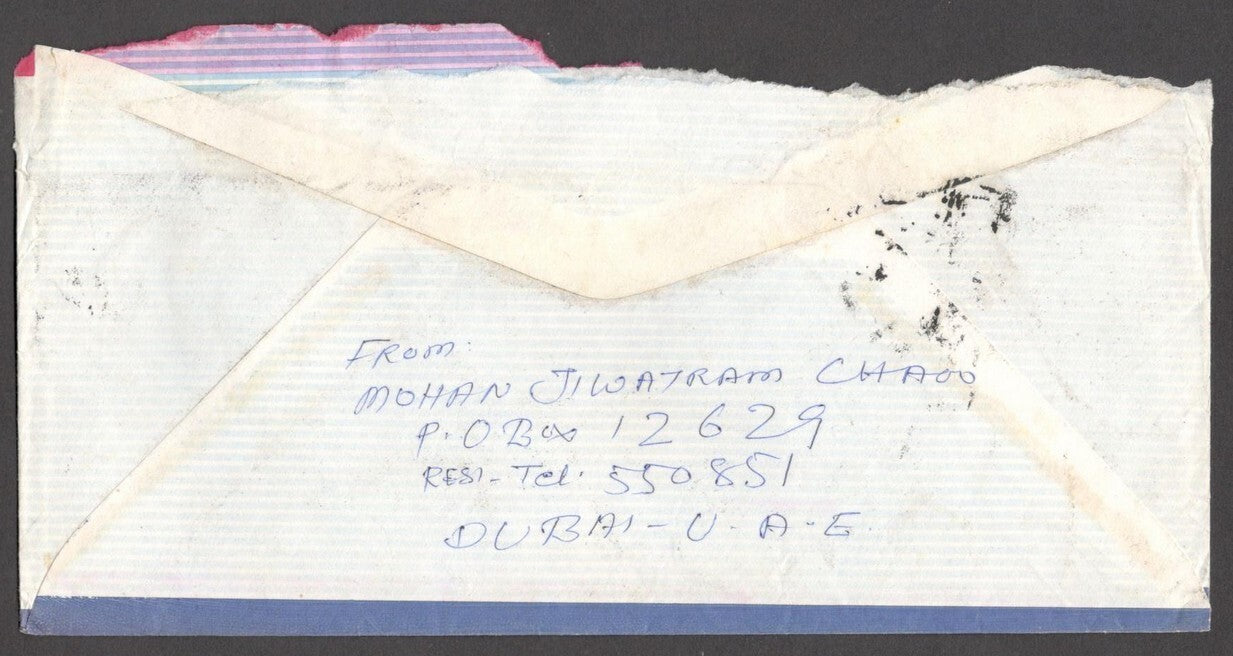 FROM:
MOHAN JIWATRAM
P.O Box 12629
RESI- Tel. 550851
DUBAI - U. A. E.